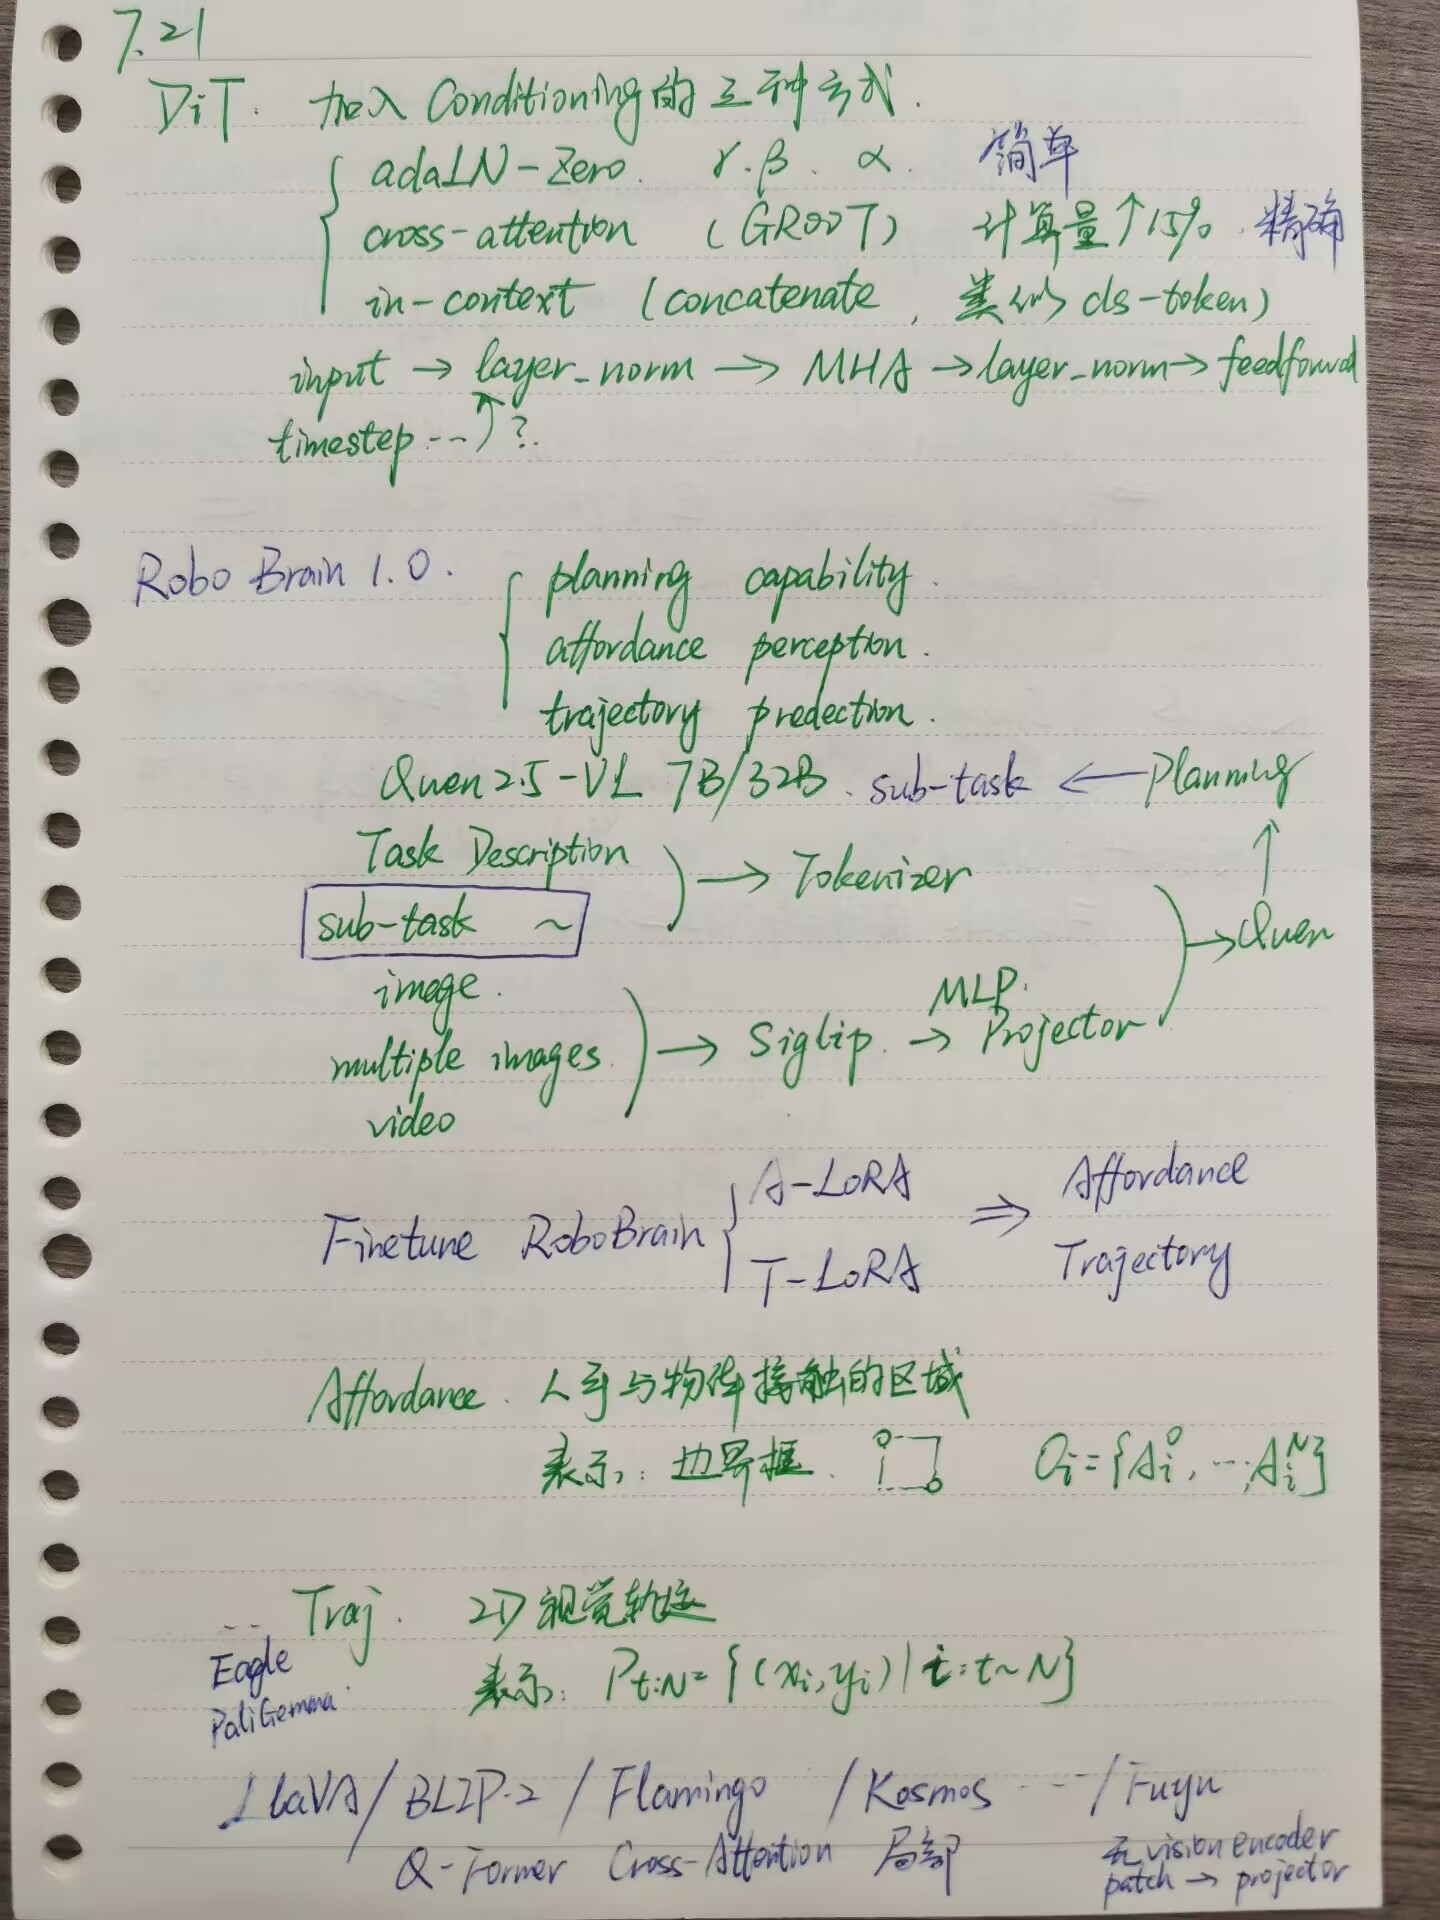 7.21
DiT. 加入 Conditioning 的三种方式.
adaLN-Zero. γ.β. α. 简单
cross-attention (GR00T) 计算量↑15%. 精确
in-context (concatenate, 类似 cls-token)
input → layer_norm → MHA → layer_norm → feedforward
timestep --- ↑ ?.
Robo Brain 1.0.
planning capability.
affordance perception.
trajectory predection.
Qwen2.5-VL 7B/32B. sub-task ← Planning
Task Description → Tokenizer ↑
sub-task ~ → Qwen
image. MLP.
multiple images. → Siglip. → Projector
video
Finetune RoboBrain
A-LoRA ⇒ Affordance
T-LoRA Trajectory
Affordance. 人手与物体接触的区域
表示: 边界框. Oi={Ai⁰, ..., Aiᴺ}
Traj. 2D 视觉轨迹
表示: Pt:N = {(xi, yi) | i: t~N}
...
Eagle
PaliGemma.
LlaVA / BLIP-2 / Flamingo / Kosmos --- / Fuyu
Q-Former Cross-Attention 局部 无 vision encoder
patch → projector